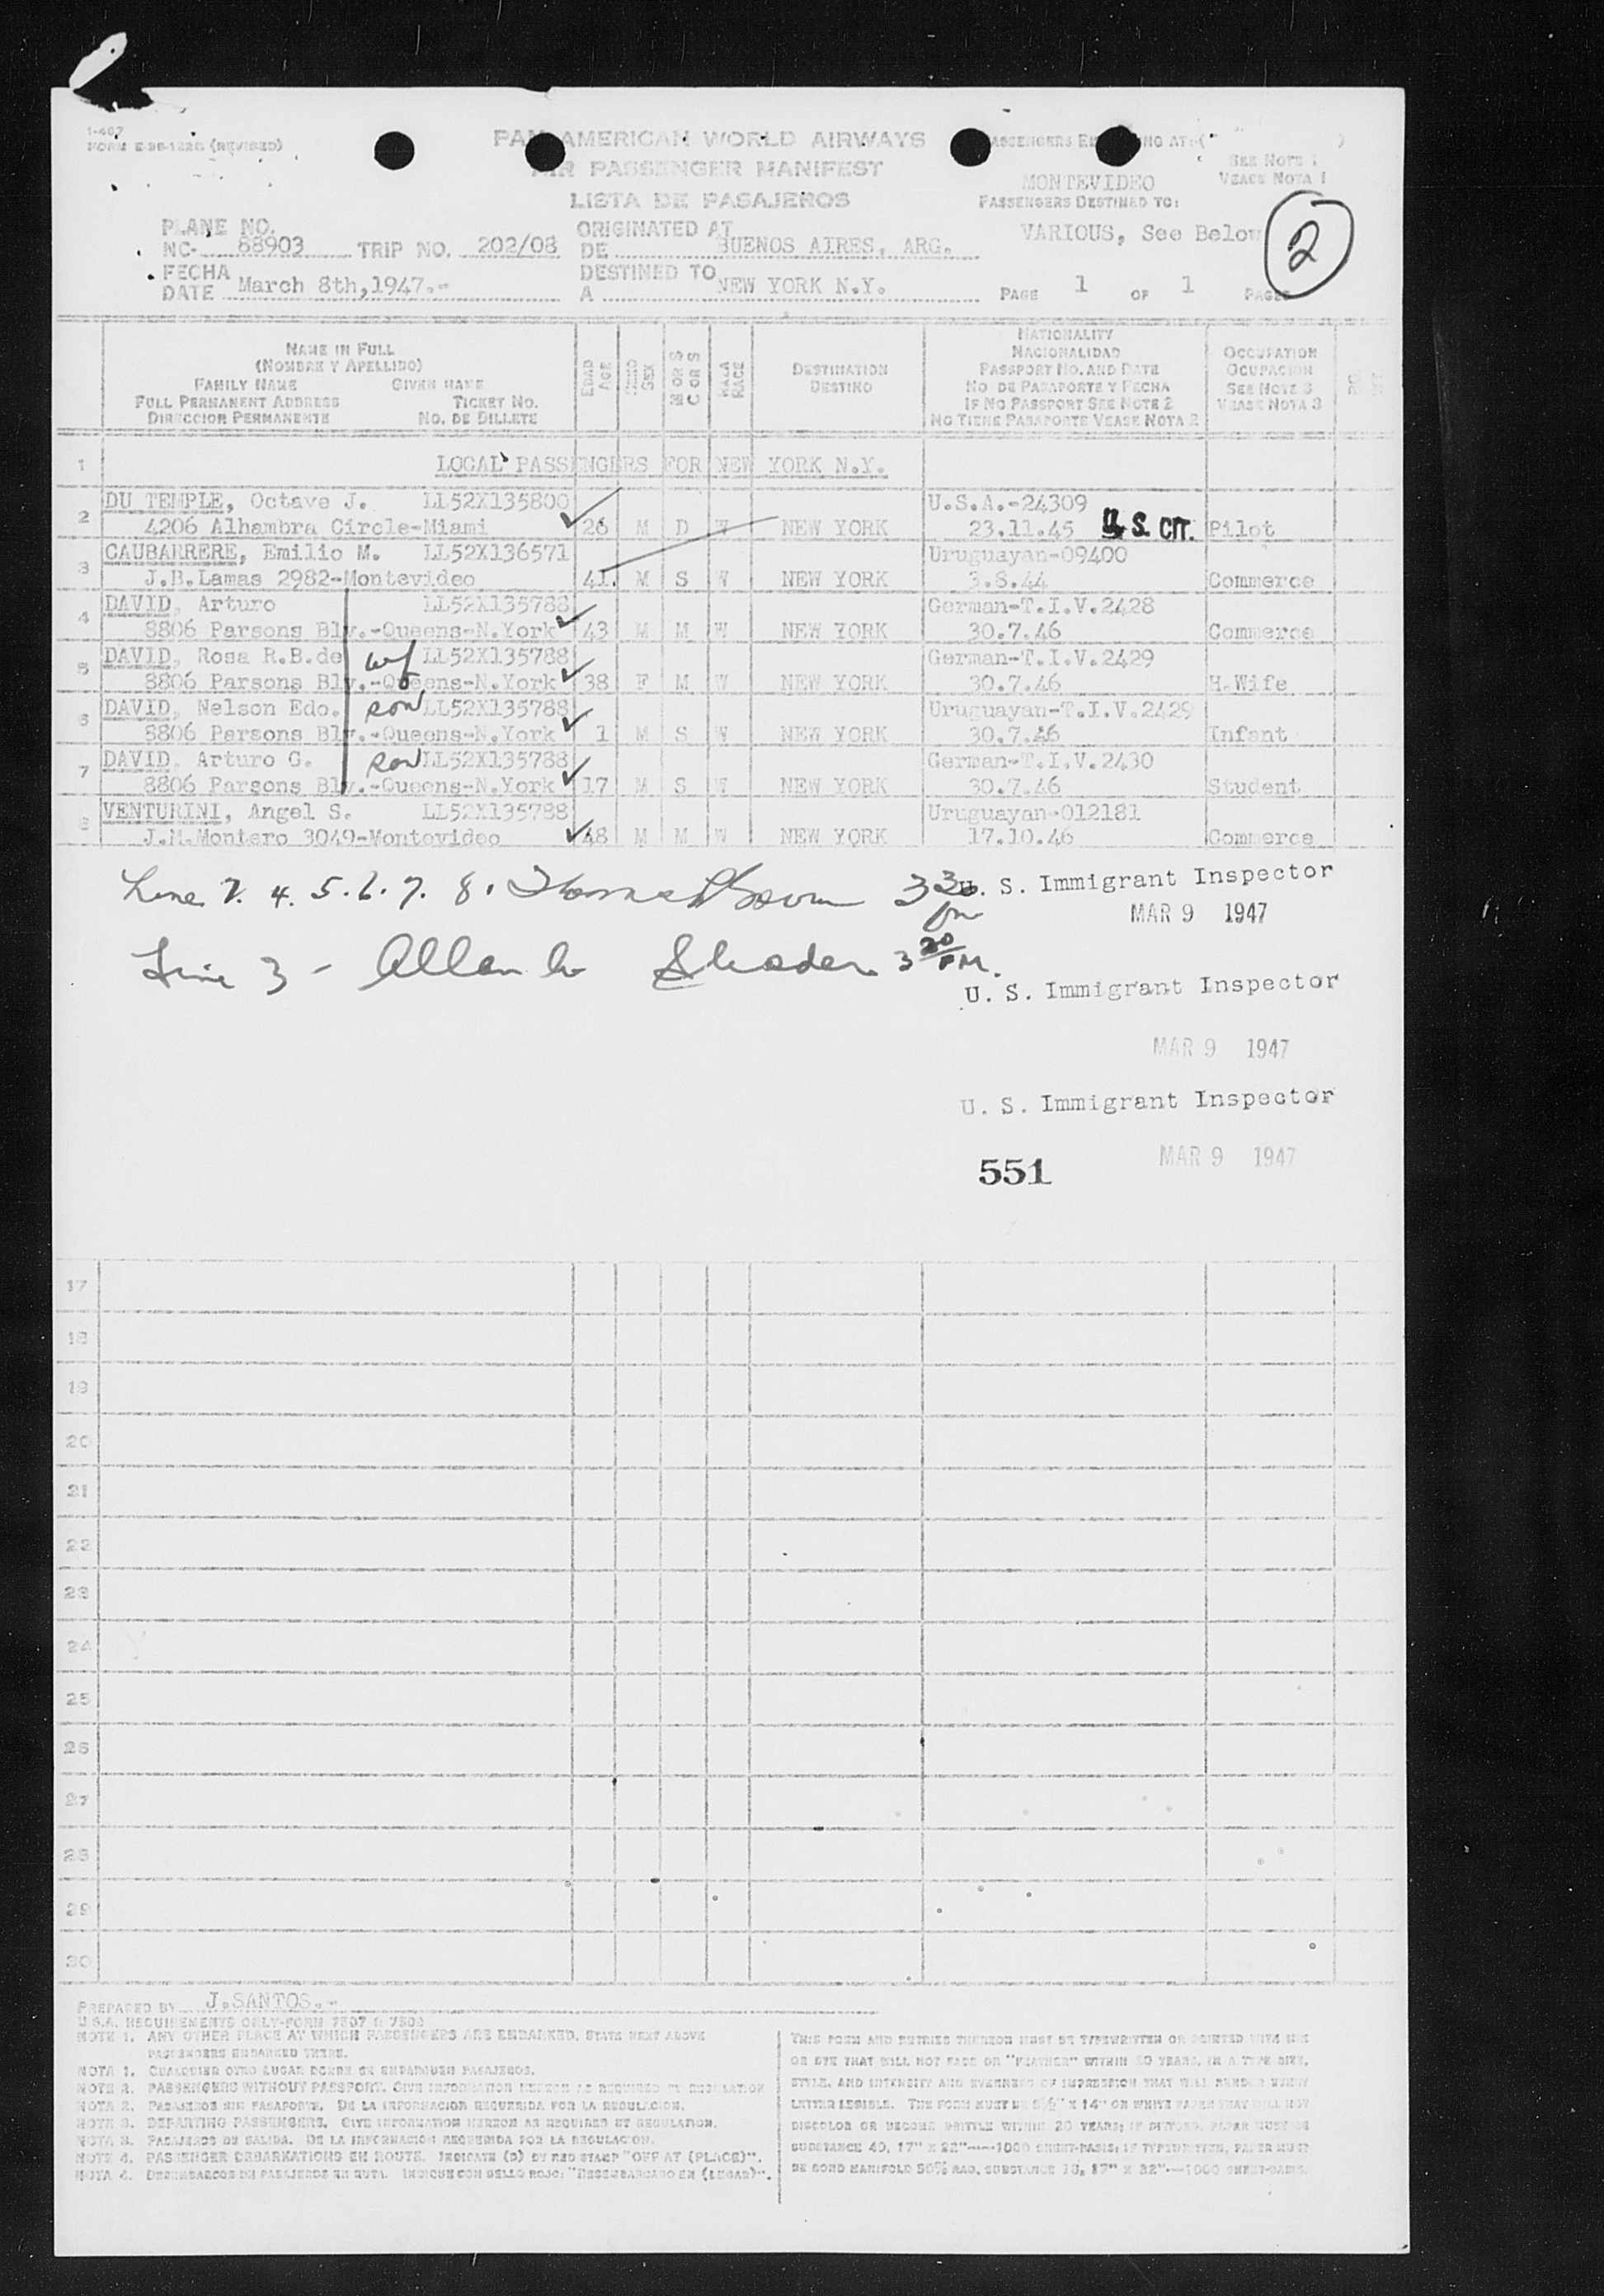 1-407
FORM E-96-122B (REVISED)
PAN AMERICAN WORLD AIRWAYS
AIR PASSENGER MANIFEST
LISTA DE PASAJEROS
SEE NOTE 1
VEASE NOTA 1
MONTEVIDEO
PASSENGERS DESTINED TO:
VARIOUS, See Below
2
PLANE NO.
NC- 88903 TRIP NO. 202/08
ORIGINATED AT
DE BUENOS AIRES, ARG.
FECHA
DATE March 8th,1947.-
DESTINED TO
A NEW YORK N.Y.
PAGE 1 OF 1 PAGES
NAME IN FULL
(NOMBRE Y APELLIDO)
FAMILY NAME GIVEN NAME
FULL PERMANENT ADDRESS TICKET NO.
DIRECCION PERMANENTE NO. DE BILLETE
EDAD
AGE
SEX
M OR S
C OR S
RAZA
RACE
DESTINATION
DESTINO
NATIONALITY
NACIONALIDAD
PASSPORT NO. AND DATE
NO DE PASAPORTE Y FECHA
IF NO PASSPORT SEE NOTE 2
NO TIENE PASAPORTE VEASE NOTA 2
OCCUPATION
OCUPACION
SEE NOTE 3
VEASE NOTA 3
1 LOCAL PASSENGERS FOR NEW YORK N.Y.
2 DU TEMPLE, Octave J. LL52X135800 U.S.A.-24309
4206 Alhambra Circle-Miami 26 M D W NEW YORK 23.11.45 U.S. CIT. Pilot
3 CAUBARRERE, Emilio M. LL52X136571 Uruguayan-09400
J.B.Lamas 2982-Montevideo 41 M S W NEW YORK 3.8.44 Commerce
4 DAVID, Arturo LL52X135788 German-T.I.V.2428
8806 Parsons Blv.-Queens-N.York 43 M M W NEW YORK 30.7.46 Commerce
5 DAVID, Rosa R.B.de wf LL52X135788 German-T.I.V.2429
8806 Parsons Blv.-Queens-N.York 38 F M W NEW YORK 30.7.46 H.Wife
6 DAVID, Nelson Edo. son LL52X135788 Uruguayan-T.I.V.2429
8806 Parsons Blv.-Queens-N.York 1 M S W NEW YORK 30.7.46 Infant
7 DAVID, Arturo G. son LL52X135788 German-T.I.V.2430
8806 Parsons Blv.-Queens-N.York 17 M S W NEW YORK 30.7.46 Student
8 VENTURINI, Angel S. LL52X135788 Uruguayan-012181
J.M.Montero 3049-Montevideo 48 M M W NEW YORK 17.10.46 Commerce
Line 2. 4. 5. 6. 7. 8. 3 30 pm U. S. Immigrant Inspector
MAR 9 1947
Line 3 - Allan 3 20 PM.
U. S. Immigrant Inspector
MAR 9 1947
U. S. Immigrant Inspector
MAR 9 1947
551
17
18
19
20
21
22
23
24
25
26
27
28
29
30
PREPARED BY J.SANTOS.-
U.S.A. REQUIREMENTS ONLY-FORM 7507 & 7508
NOTE 1. ANY OTHER PLACE AT WHICH PASSENGERS ARE EMBARKED, STATE NEXT ABOVE
PASSENGERS EMBARKED THERE.
NOTA 1. CUALQUIER OTRO LUGAR DONDE SE EMBARQUEN PASAJEROS.
NOTE 2. PASSENGERS WITHOUT PASSPORT. GIVE INFORMATION HEREON AS REQUIRED BY REGULATION
NOTA 2. PASAJEROS SIN PASAPORTE. DE LA INFORMACION REQUERIDA POR LA REGULACION.
NOTE 3. DEPARTING PASSENGERS. GIVE INFORMATION HEREON AS REQUIRED BY REGULATION.
NOTA 3. PASAJEROS DE SALIDA. DE LA INFORMACION REQUERIDA POR LA REGULACION.
NOTE 4. PASSENGER DEBARKATIONS EN ROUTE. INDICATE (D) BY RED STAMP "OFF AT (PLACE)".
NOTA 4. DESEMBARCOS DE PASAJEROS EN RUTA. INDIQUE CON SELLO ROJO: "DESEMBARCADO EN (LUGAR)".
THIS FORM AND ENTRIES THEREON MUST BE TYPEWRITTEN OR PRINTED WITH INK
OR DYE THAT WILL NOT FADE OR "FEATHER" WITHIN 20 YEARS, IN A TYPE SIZE,
STYLE, AND INTENSITY AND EVENNESS OF IMPRESSION THAT WILL RENDER EVERY
LETTER LEGIBLE. THE FORM MUST BE 8½" X 14" ON WHITE PAPER THAT WILL NOT
DISCOLOR OR BECOME BRITTLE WITHIN 20 YEARS; IF PRINTED, PAPER MUST BE
SUBSTANCE 40, 17" X 22"----1000 SHEET-BASIS; IF TYPEWRITTEN, PAPER MUST
BE BOND MANIFOLD 50% RAG, SUBSTANCE 18, 17" X 22"---1000 SHEET-BASIS.